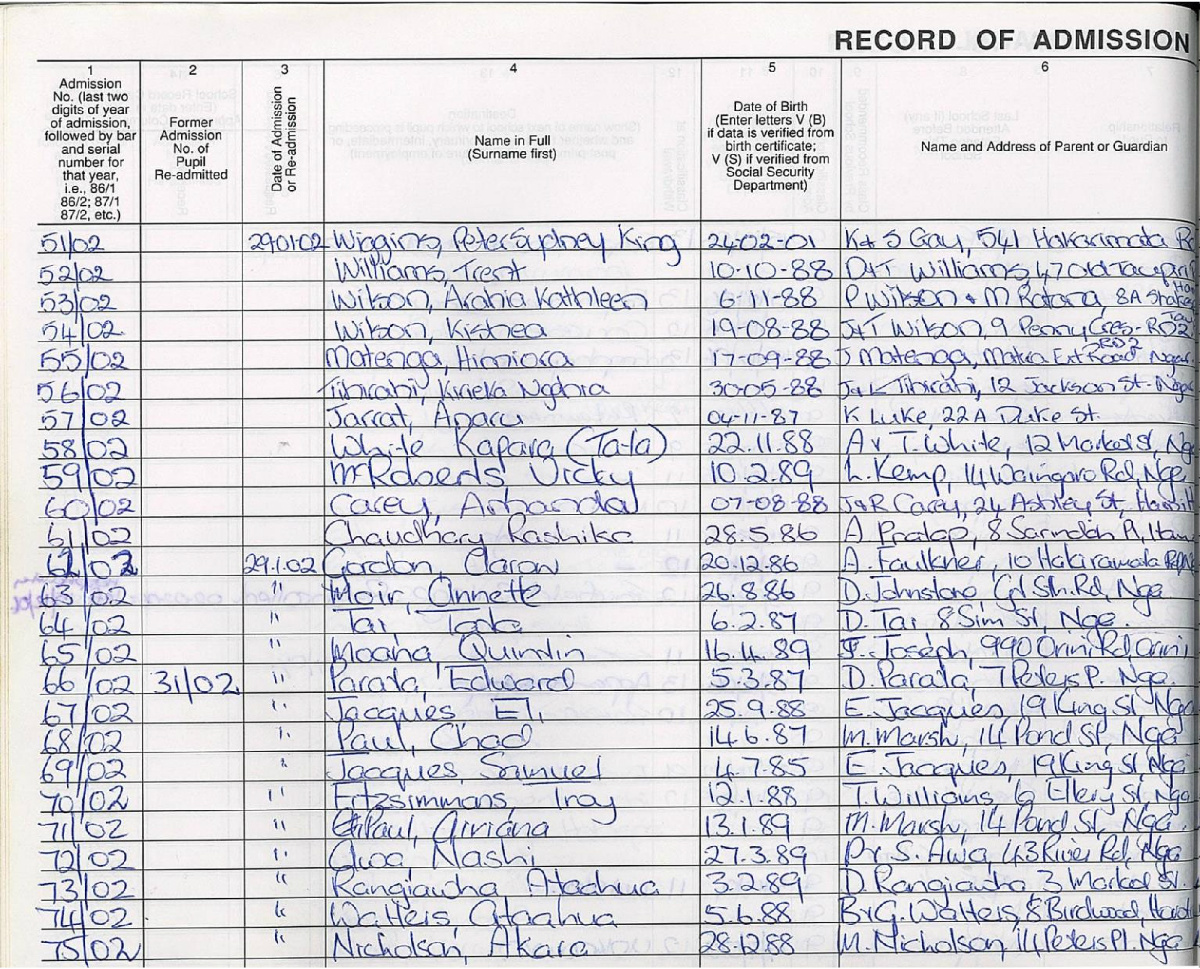 RECORD OF ADMISSION
1 2 3 4 5 6
Admission No. (last two digits of year of admission, followed by bar and serial number for that year, i.e., 86/1 86/2; 87/1 87/2, etc.)
Former Admission No. of Pupil Re-admitted
Date of Admission or Re-admission
Name in Full (Surname first)
Date of Birth (Enter letters V (B) if data is verified from birth certificate; V (S) if verified from Social Security Department)
Name and Address of Parent or Guardian
51/02 290102 Wiggins, Peter Sydney King 24-02-01 K & S Gay, 541 Hakarimata
52/02 Williams, Trent 10-10-88 D&T Williams, 47 Old Taupiri
53/02 Wilson, Arahia Kathleen 6-11-88 P Wilson & M Ratana, 8A
54/02 Wilson, 19-08-88 J&T Wilson, 9 Penny Cres - RD2
55/02 Matenga, Himiora 17-09-88 J Matenga, Ext Road RD2
56/02 30-05-88 12 Jackson St -
57/02 Jarrat, 04-11-87 K Luke, 22A Duke St.
58/02 White Kapara (Ta-la) 22.11.88 A & T. White, 12 Market St,
59/02 McRoberts Vicky 10.2.89 L. Kemp, 14 Waingaro Rd, Nga
60/02 Carey, 07-08-88 J&R Carey, 24 Ashley St,
61/02 Chaudhary Rashika 28.5.86 A. Pratap, 8
62/02 29.1.02 Gordon, 20.12.86 A. Faulkner, 10
63/02 " Moir, Annette 26.8.86 D. Johnstone, Rd, Nga
64/02 " Tai, 6.2.87 D. Tai 8 Sim St, Nga.
65/02 " Moana, Quindin 16.4.89 Joseph, 990 Orini Rd Orini
66/02 31/02 " Parata, Edward 5.3.87 D. Parata, 7 Peters P. Nga.
67/02 " Jacques, 25.9.88 E. Jacques, 19 King St Nga
68/02 " Paul, Chad 14.6.87 M. Marsh, 14 Pond St, Nga
69/02 " Jacques, Samuel 4.7.85 E. Jacques, 19 King St, Nga
70/02 " Fitzsimmons, Troy 12.1.88 T. Williams, 6 Ellery St, Nga
71/02 " Paul, Airiana 13.1.89 M. Marsh, 14 Pond St, Nga.
72/02 " Nashi 27.3.89 S. Awa, 43 River Rd, Nga
73/02 " Rangiawha Ataahua 3.2.89 D. Rangiawha 3 Market St.
74/02 " Walters, Ataahua 5.6.88 B & G. Walters, 8 Birdwood,
75/02 " Nicholson, Akara 28.12.88 M. Nicholson, 14 Peters Pl. Nga